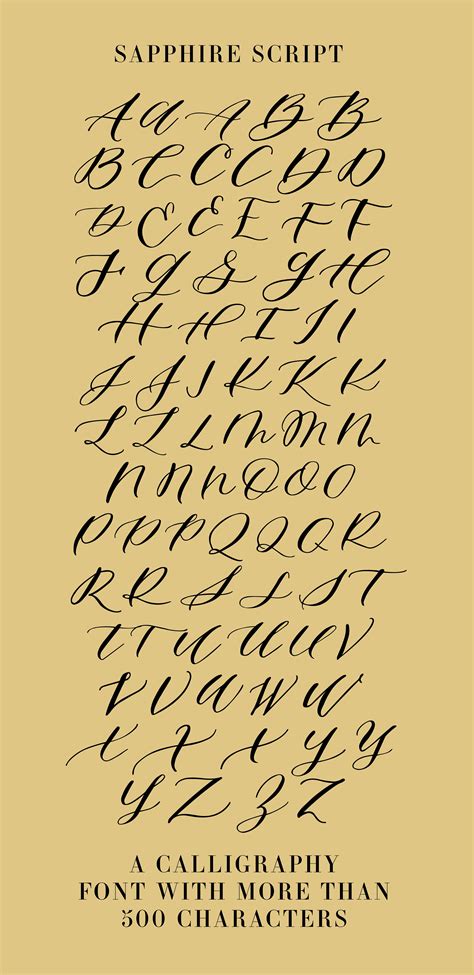 SAPPHIRE SCRIPT
A A A B B
B C C C D D
D E E E F F
F G G G H
H H I I I
J J J K K K
L L L M M M
N N N O O O
P P P Q Q Q R
R R S S S T
T T U U U V
V V W W W
X X X Y Y
Y Z Z Z
A CALLIGRAPHY
FONT WITH MORE THAN
500 CHARACTERS